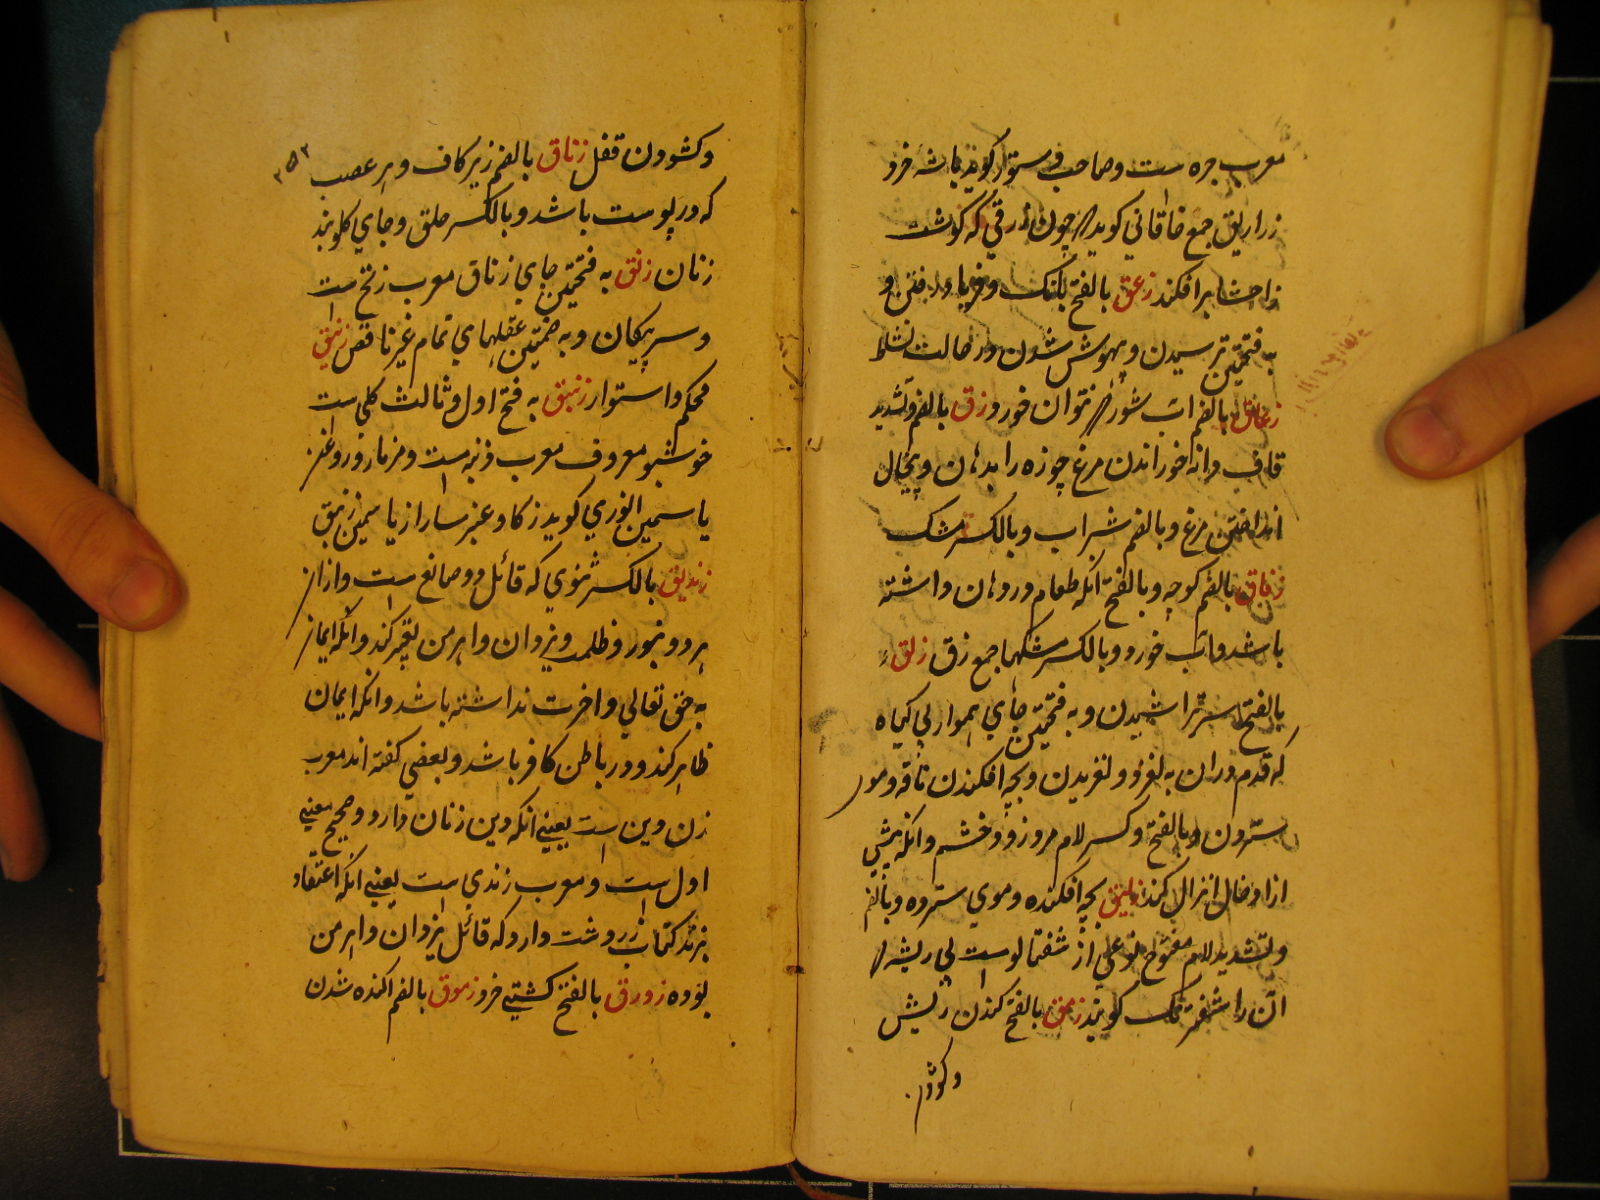 معرب جره است و صاحب دستور کوید باشه خرو
زراریق جمع خاقانی کوید // چون زرقی که کوشت
زاحشا برافکند زعق بالفتح بانک و فریاد رفتن و
به فتحتین ترسیدن و بیهوش شدن و در حالت نشاط
زعاق بالضم اب شور // نتوان خورد زق بالضم و تشدید
قاف دانه خوراندن مرغ چوزه را بدهان و پیخال
انداختن مرغ و بالضم شراب و بالکسر مشک
زقاق بالضم کوچه و بالفتح انکه طعام در دهان داشته
باشد و اب خورد و بالکسر مشکها جمع زق زلق
بالفتح ستر تراشیدن و به فتحتین جای هموار بی کیاه
که قدم دران به لغزد و لغزیدن و بچه افکندن ناقه و موی
ستردن و بالفتح و کسر لام مرد زود خشم و انکه پیش
از دخال انزال کند زلیق بچه افکنده و موی سترده و بالضم
و تشدید لام مفتوح نوعی از شفتالوست بی ریشه //
ان را شفترنک کویند زمق بالفتح کندن ریش
و کشودن
۲۵۲
و کشودن قفل زناق بالضم زیر کاف و هر عصب
که در پوست باشد و بالکسر حلق و جای کلوبند
زنان زنق به فتحتین جای زناق معرب زنخ است
و سر پیکان و به ضمتین عقلهای تمام غیر ناقص زنیق
محکم و استوار زنبق به فتح اول و ثالث کلی است
خوشبو معروف معرب زنبه است و مزمار و روغن
یاسمین انوری کوید ز کاو عنبر سارا ز یاسمین زنبق
زندیق بالکسر ثنوی که قائل دو صانع است و ازان
هر دو بنور و ظلمت و یزدان و اهرمن تعبیر کند و انکه ایمان
به حق تعالی و اخرت نداشته باشد و انکه ایمان
ظاهر کند و در باطن کافر باشد و بعضی کفته اند معرب
زن دین است یعنی انکه دین زنان دارد و صحیح معنی
اول است و معرب زندی است یعنی انکه اعتقاد
بزند کتاب زردشت دارد که قائل یزدان و اهرمن
بوده زورق بالفتح کشتی خرد زموق بالضم اکنده شدن